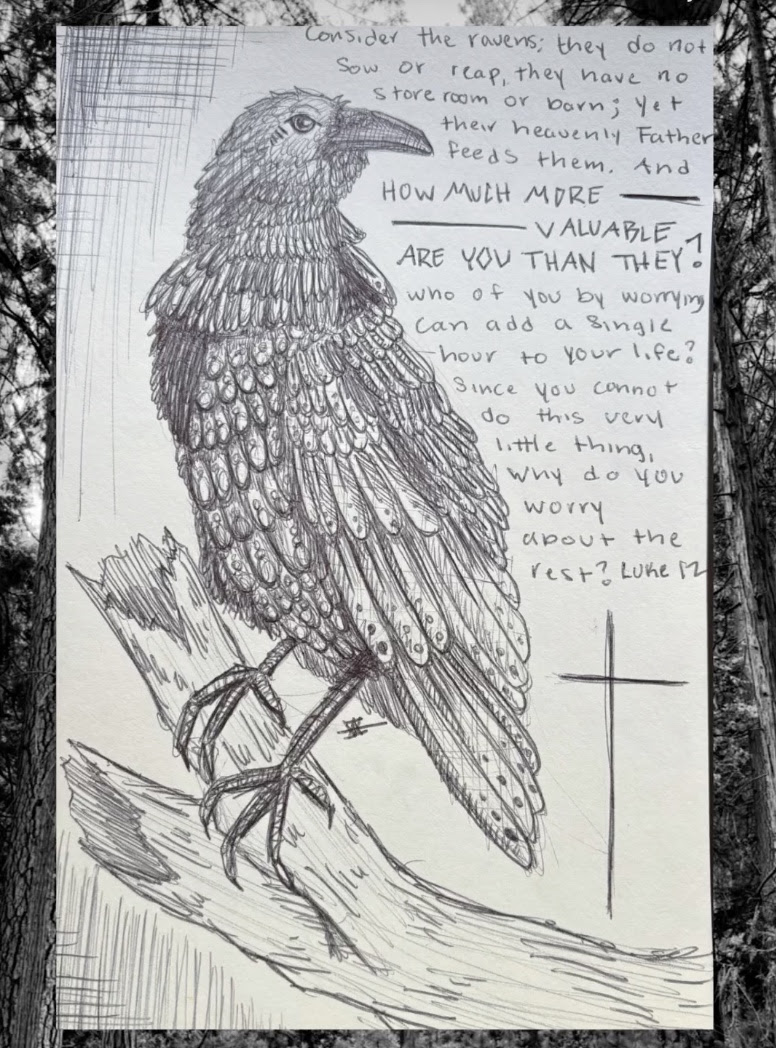 Consider the ravens; they do not
Sow or reap, they have no
storeroom or barn; yet
their heavenly Father
feeds them. And
HOW MUCH MORE
VALUABLE
ARE YOU THAN THEY?
who of you by worrying
can add a single
hour to your life?
Since you cannot
do this very
little thing,
why do you
worry
about the
rest? Luke 12